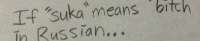 If "suka" means bitch
in Russian...